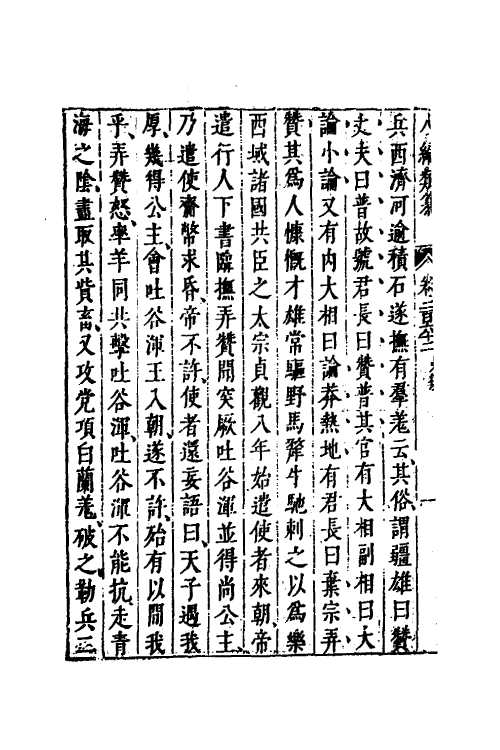 八編類纂　卷二百六十二
兵西濟河逾積石遂撫有羣羌云其俗謂彊雄曰贊
丈夫曰普故號君長曰贊普其官有大相副相曰大
論小論又有內大相曰論莽熱地有君長曰棄宗弄
贊其爲人慷慨才雄常驅野馬犛牛馳刺之以爲樂
西域諸國共臣之太宗貞觀八年始遣使者來朝帝
遣行人下書臨撫弄贊聞突厥吐谷渾並得尚公主
乃遣使齎幣求昏帝不許使者還妄語曰天子遇我
厚幾得公主會吐谷渾王入朝遂不許殆有以間我
乎弄贊怒率羊同共擊吐谷渾吐谷渾不能抗走青
海之陰盡取其貲畜又攻党項白蘭羌破之勒兵三